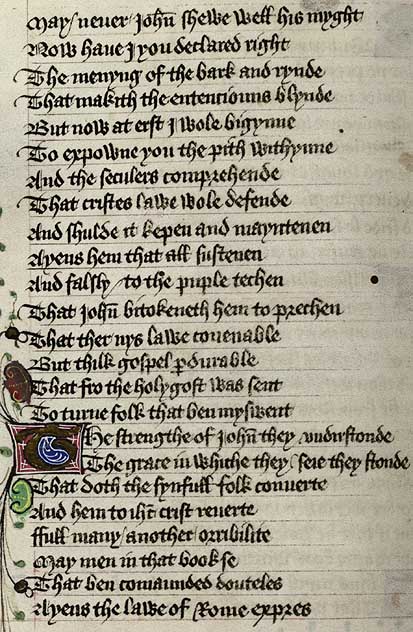 May neuer John̄ shewe well his myght
Now haue I you declared right
The menyng of the bark and rynde
That makith the entenciouns blynde
But now at erst I wole bigynne
To expowne you the pith withynne
And the seculers comprehende
That cristes lawe wole defende
And shulde it kepen and mayntenen
Ayens hem that all sustenen
And falsly to the puple techen
That John̄ bitokeneth hem to prechen
That ther nys lawe couenable
But thilk gospel ꝑdurable
That fro the holygost was sent
To turne folk that ben myswent
The strengthe of John̄ they vndirstonde
The grace in whiche they seie they stonde
That doth the synfull folk conuerte
And hem to ihc̄ crist reuerte
ffull many another orribilite
May men in that book se
That ben comaunded douteles
Ayens the lawe of Rome expres